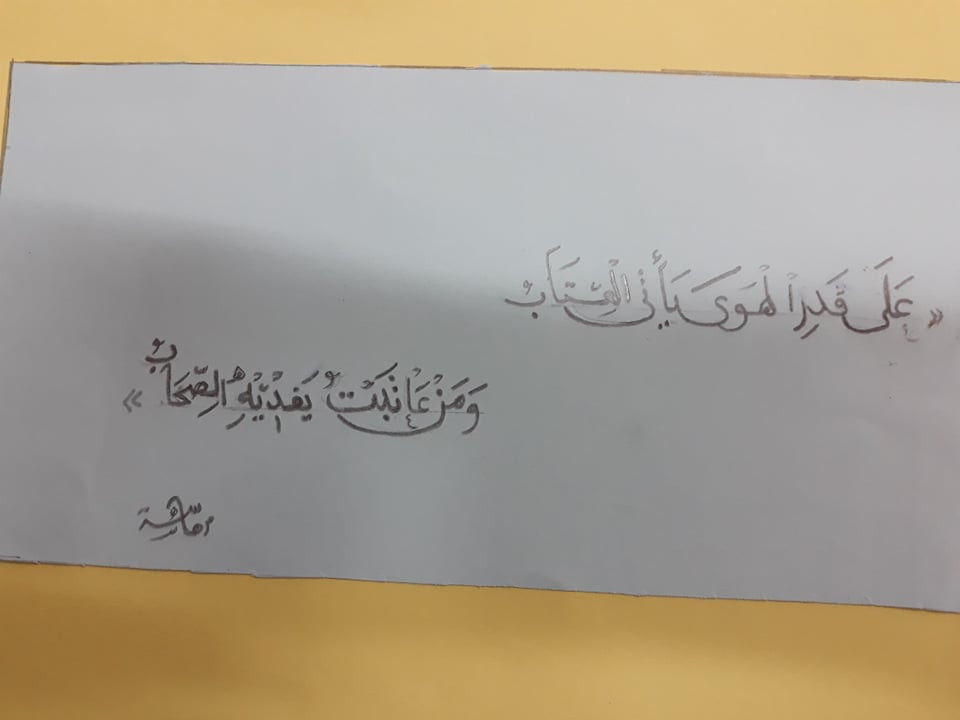 « عَلَى قَدَرِ الْهَوَى يَأْتِي الْعِتَابُ
وَمَنْ عَاتَبْتُ يَفْدِيْهِ الصِّحَابُ »